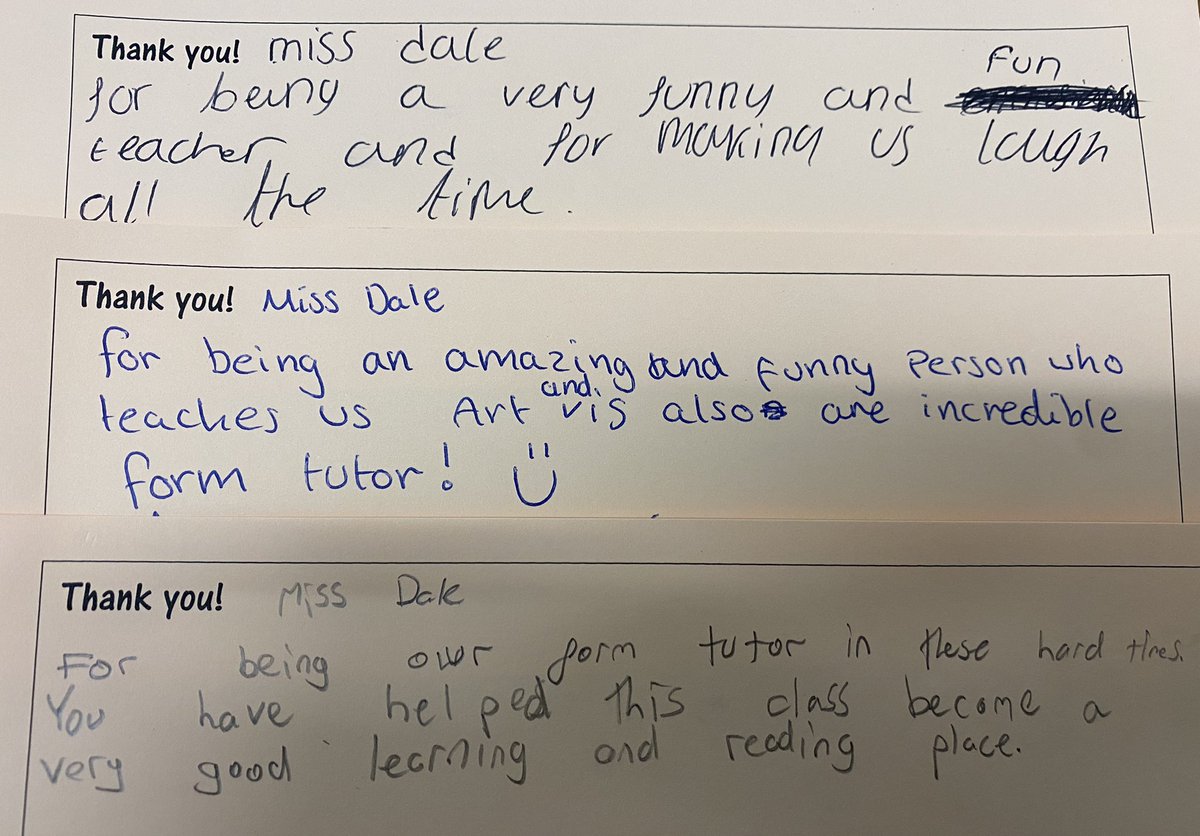 Thank you! miss dale
for being a very funny and fun
teacher, and for making us laugh
all the time.
Thank you! Miss Dale
for being an amazing and funny Person who
teaches us Art and vis also are incredible
form tutor! Ü
Thank you! Miss Dale
For being our form tutor in these hard times.
You have helped this class become a
very good learning and reading place.